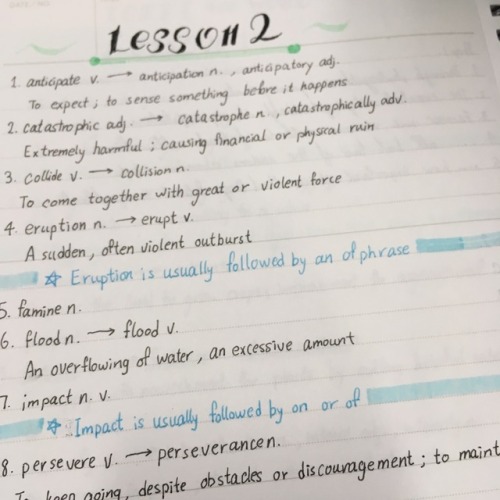 Lesson 2
1. anticipate v. → anticipation n. , anticipatory adj.
To expect ; to sense something before it happens
2. catastrophic adj. → catastrophe n. , catastrophically adv.
Extremely harmful ; causing financial or physical ruin
3. collide v. → collision n.
To come together with great or violent force
4. eruption n. → erupt v.
A sudden, often violent outburst
☆ Eruption is usually followed by an of phrase
5. famine n.
6. flood n. → flood v.
An overflowing of water , an excessive amount
7. impact n. v.
☆ Impact is usually followed by on or of
8. persevere v. → perseverance n.
To keep going, despite obstacles or discouragement ; to maint